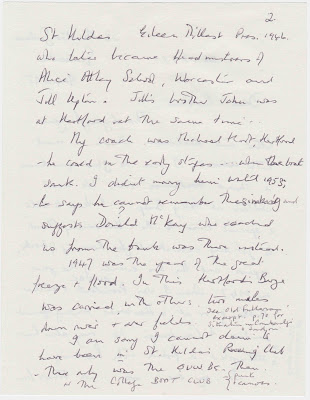 2.
St Hildas Eileen Pres. 1946.
who later became Headmistress of
Alice Ottley School, Worcester and
Jill Upton. Jill's brother John was
at Hertford at the same time.
My coach was Michael Hertford
- he could in the early stages ... when the boat
sank. I didn't marry him until 1953,
he says he cannot remember the sinking and
suggests Donald McKay who coached
us from the bank was there instead.
1947 was the year of the great
freeze + flood. In this Hertford's Barge
was carried, with others, two miles
down river + over fields.
see Old
p. 70 for
situation in Cambridge
+ London
I am sorry I cannot claim to
have been in St. Hilda's Rowing Club
- There only was the OUWBC. Then
or the College BOAT CLUB
punts
canoes.